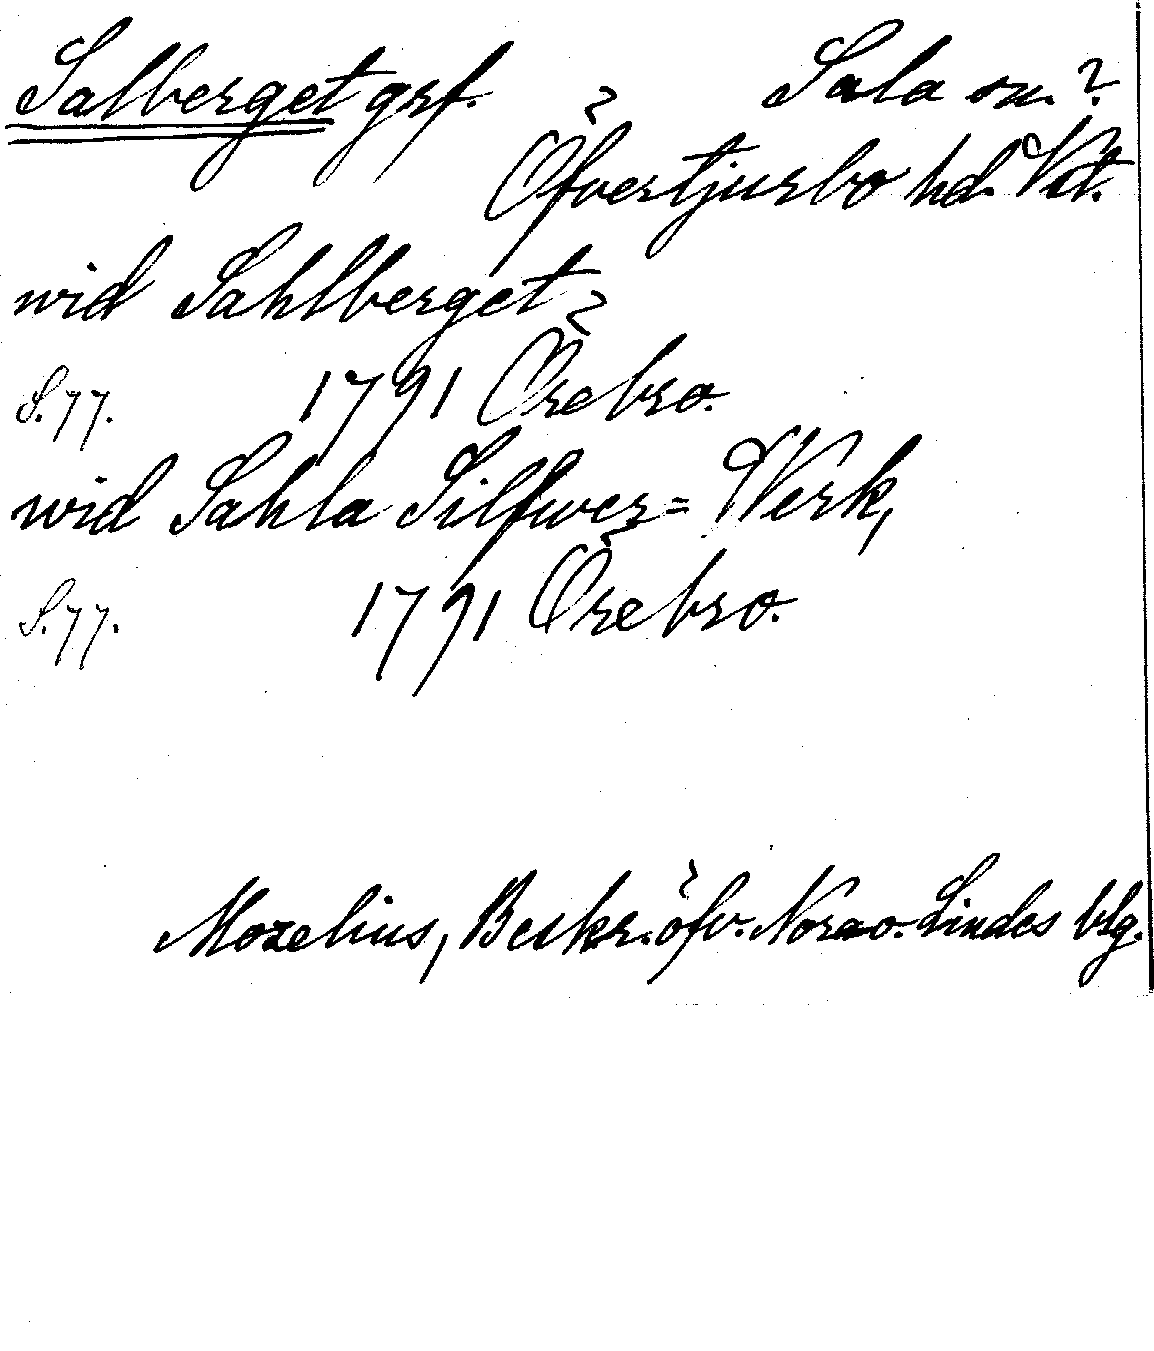 Salberget grf. Sala sn.?
Öfvertjurbo hd. Vst.
wid Sahlberget
S.77. 1791 Örebro.
wid Sahla Silfwer=Werk,
S.77. 1791 Örebro.
Mozelius, Beskr. öfv. Nora o. Lindes blg.